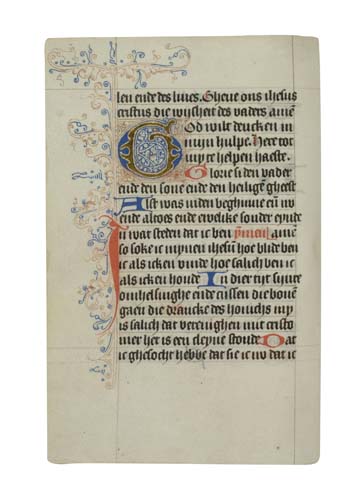 len ende des liues. Gheue ons ihesus
cristus die wijsheit des vaders amē
God wilt dencken in
mijn hulpe. Here tot
my te helpen haeste.
Glorie si den vader
ende den sone ende den heilighē gheest
Alst was inden beghinne eñ nv
ende altoes ende ewelike sonder eynde
In wat steden dat ic ben amē
so soke ic mynen ihesū hoe blide ben
ic als icken vinde hoe salich ben
ic als icken houde In dier tijt
omhelsinghe ende cussen die bouē
gaen die drancke des honichs
is salich dat verenighen mit cristo
mer het is een cleyne stonde Dat
ic ghesocht hebbe dat sie ic nv dat ic